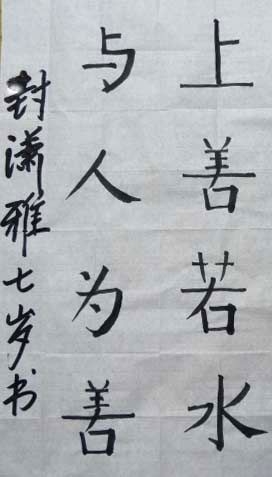 上善若水
与人为善
封潇雅七岁书